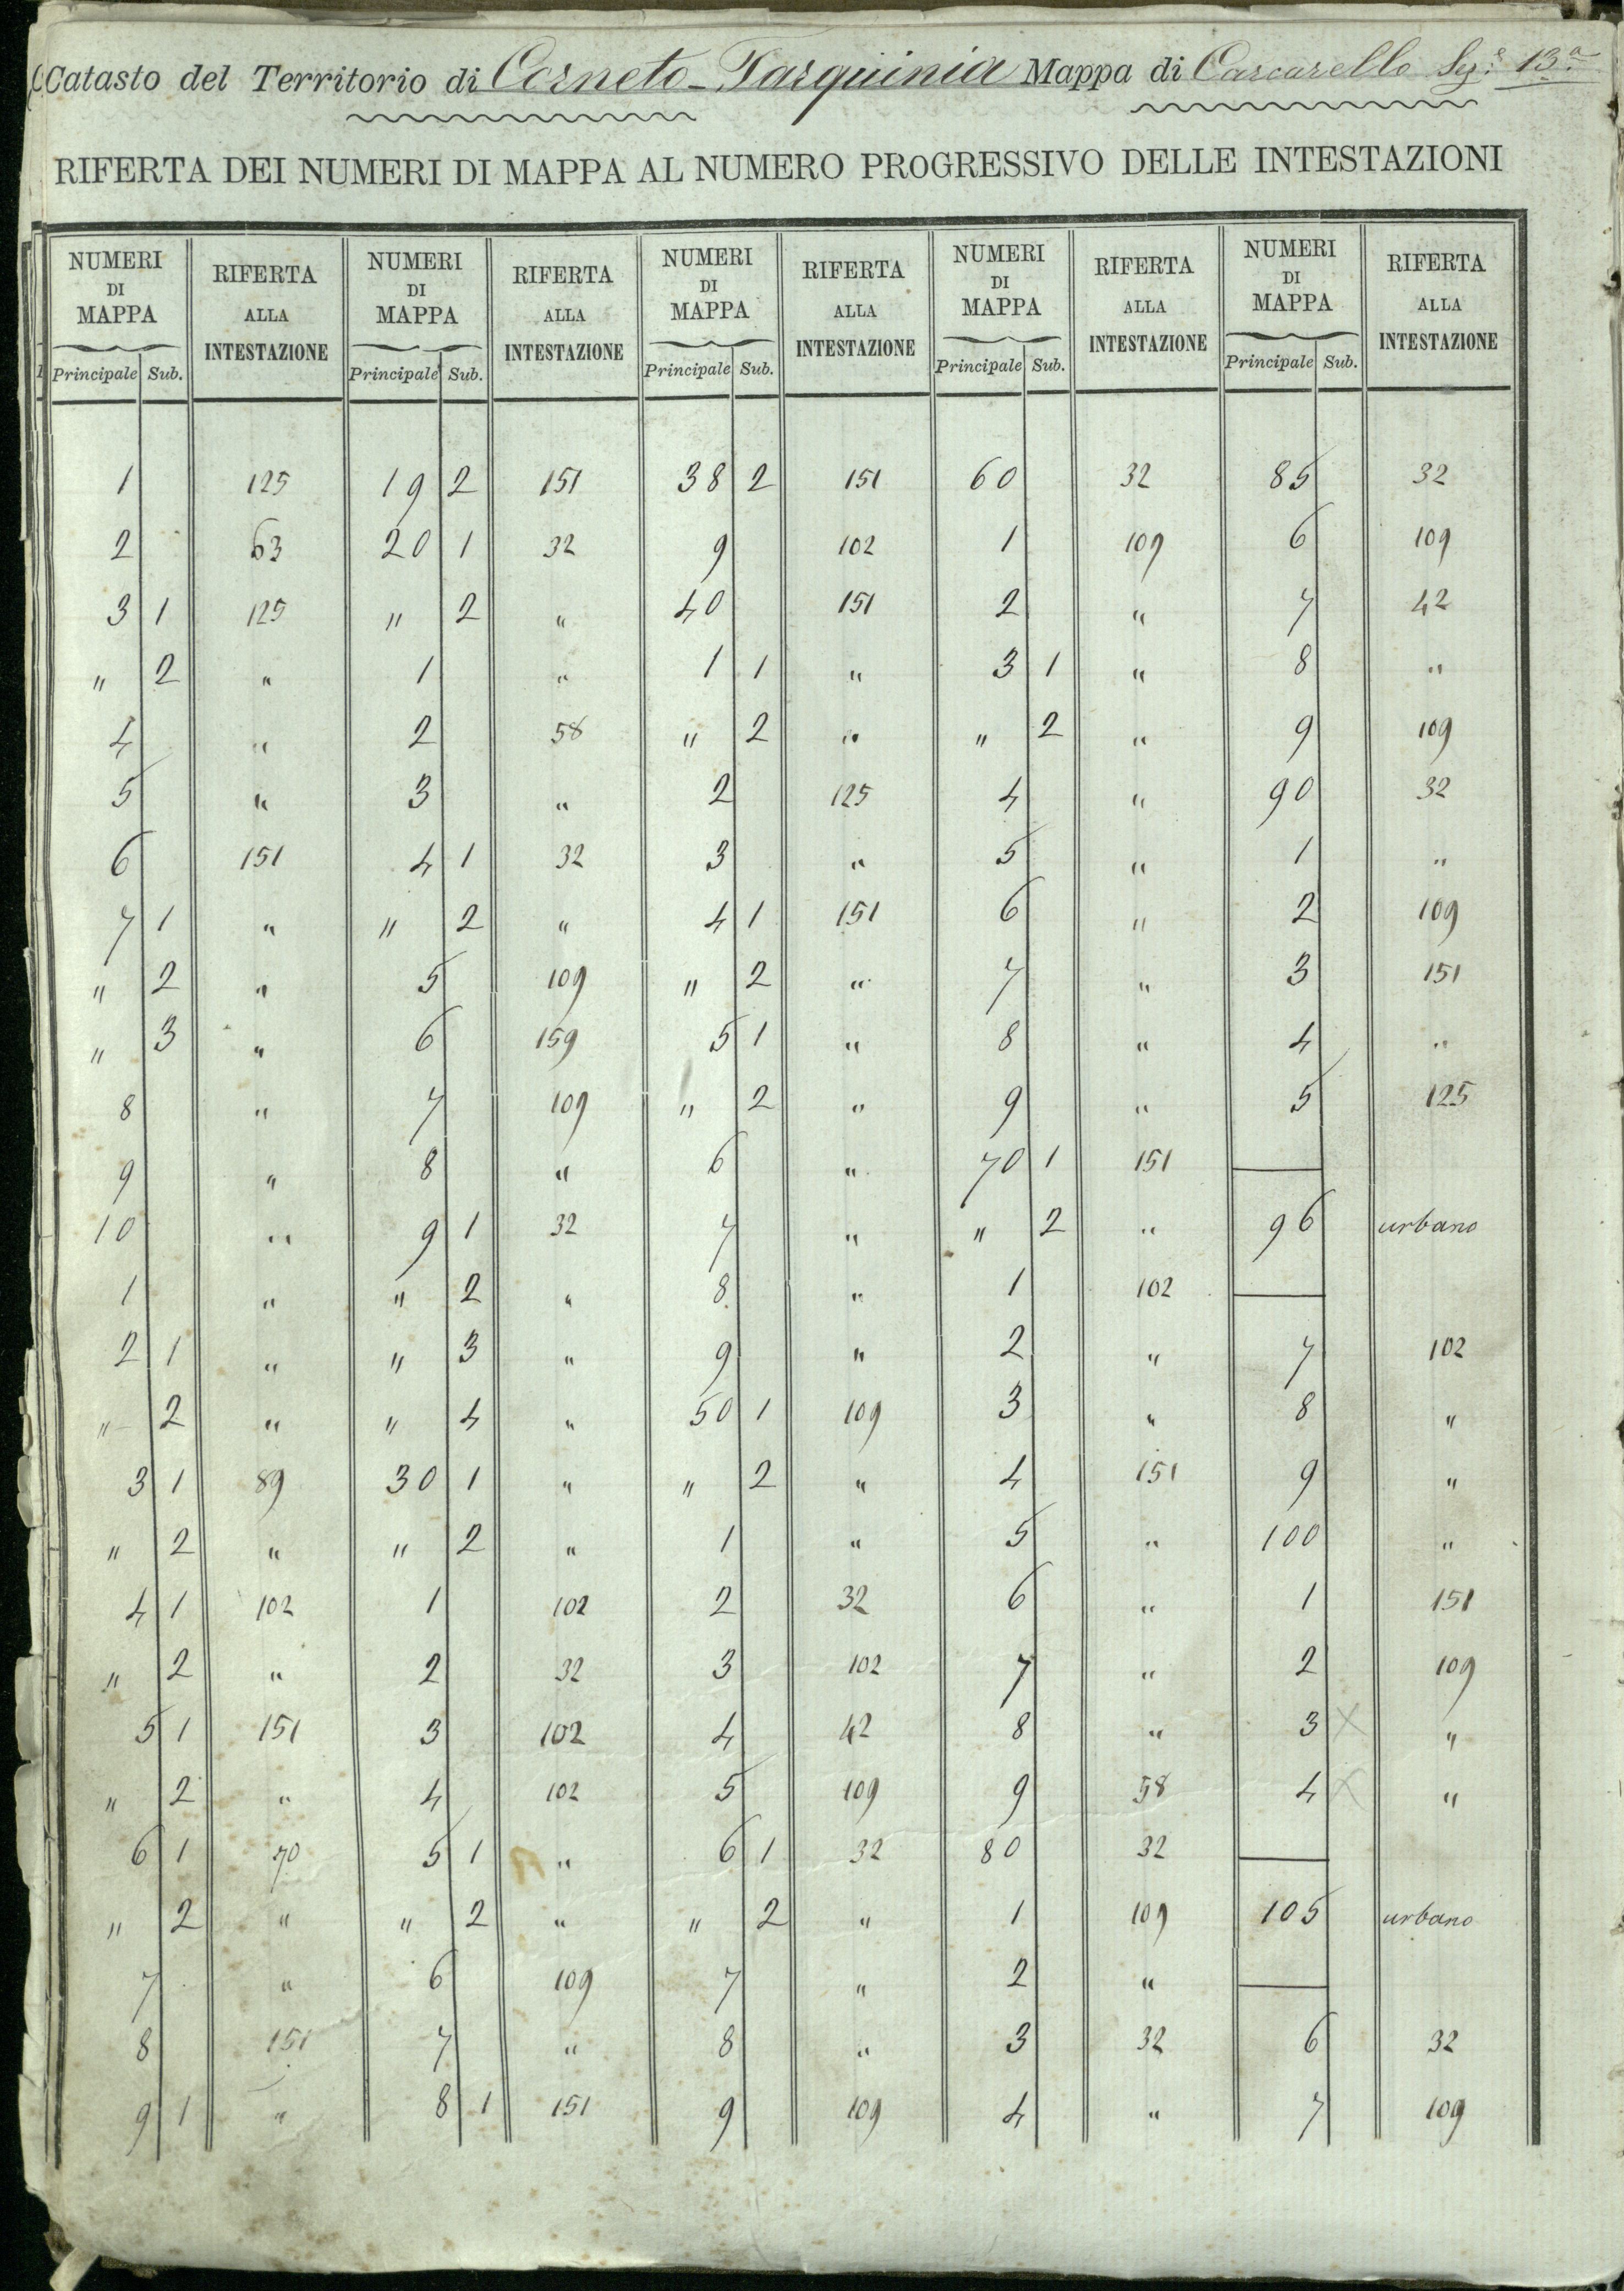 Catasto del Territorio di Corneto-Tarquinia Mappa di Carcarello 13.a
RIFERTA DEI NUMERI DI MAPPA AL NUMERO PROGRESSIVO DELLE INTESTAZIONI
NUMERI DI MAPPA RIFERTA ALLA INTESTAZIONE NUMERI DI MAPPA RIFERTA ALLA INTESTAZIONE NUMERI DI MAPPA RIFERTA ALLA INTESTAZIONE NUMERI DI MAPPA RIFERTA ALLA INTESTAZIONE NUMERI DI MAPPA RIFERTA ALLA INTESTAZIONE
Principale Sub. Principale Sub. Principale Sub. Principale Sub. Principale Sub.
1 125 19 2 151 38 2 151 60 32 85 32
2 63 20 1 32 9 102 1 109 6 109
3 1 125 " 2 " 40 151 2 " 7 42
" 2 " 1 " 1 1 " 3 1 " 8 "
4 " 2 58 " 2 " " 2 " 9 109
5 " 3 " 2 125 4 " 90 32
6 151 4 1 32 3 " 5 " 1 "
7 1 " " 2 " 4 1 151 6 " 2 109
" 2 " 5 109 " 2 " 7 " 3 151
" 3 " 6 159 5 1 " 8 " 4 "
8 " 7 109 " 2 " 9 " 5 125
9 " 8 " 6 " 70 1 151
10 " 9 1 32 7 " " 2 " 96 urbano
1 " " 2 " 8 " 1 102
2 1 " " 3 " 9 " 2 " 7 102
" 2 " " 4 " 50 1 109 3 " 8 "
3 1 89 30 1 " " 2 " 4 151 9 "
" 2 " " 2 " 1 " 5 " 100 "
4 1 102 1 102 2 32 6 " 1 151
" 2 " 2 32 3 102 7 " 2 109
5 1 151 3 102 4 42 8 " 3 X "
" 2 " 4 102 5 109 9 58 4 X "
6 1 70 5 1 " 6 1 32 80 32
" 2 " " 2 " " 2 " 1 109 105 urbano
7 " 6 109 7 " 2 "
8 151 7 " 8 " 3 32 6 32
9 1 " 8 1 151 9 109 4 " 7 109